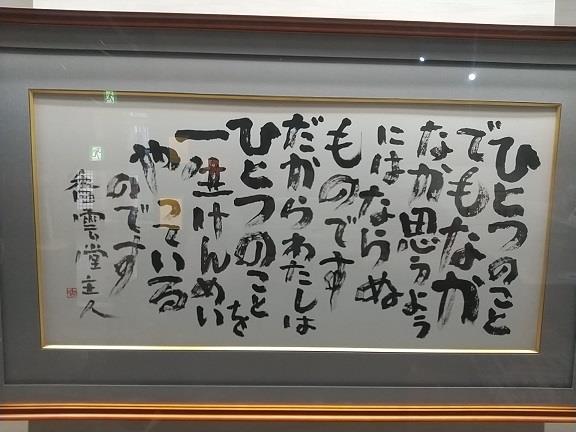 ひとつのこと
でもなか
なか思うよう
にはならぬ
ものです
だからわたしは
ひとつのことを
一生けんめい
やっている
のです
雲堂主人